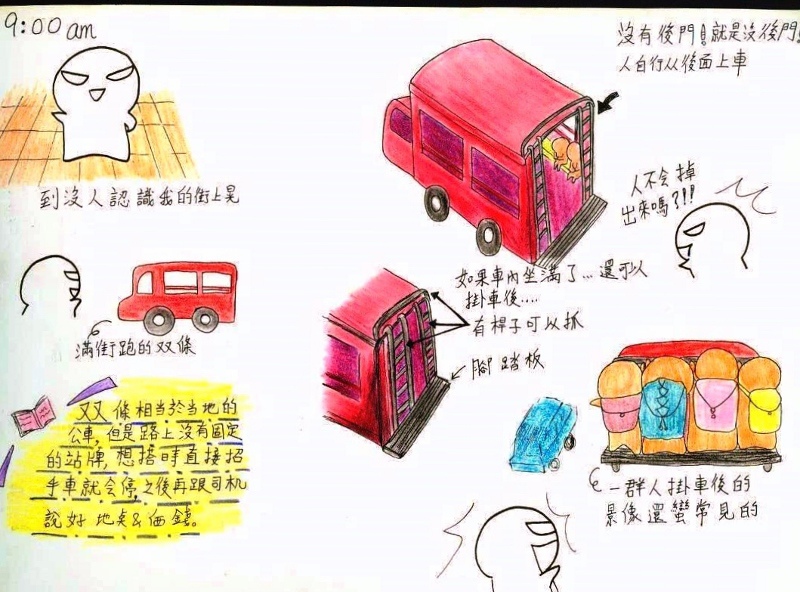 9:00 am
到沒人認識我的街上晃
滿街跑的双條
双條相当於当地的
公車,但是路上沒有固定
的站牌,想搭時直接招
手車就会停,之後再跟司机
說好地点&価錢。
沒有後門!就是沒後門!
人自行从後面上車
人不会掉
出來嗎?!!
如果車內坐滿了...還可以
掛車後....
有桿子可以抓
腳踏板
一群人掛車後的
景像還蠻常見的